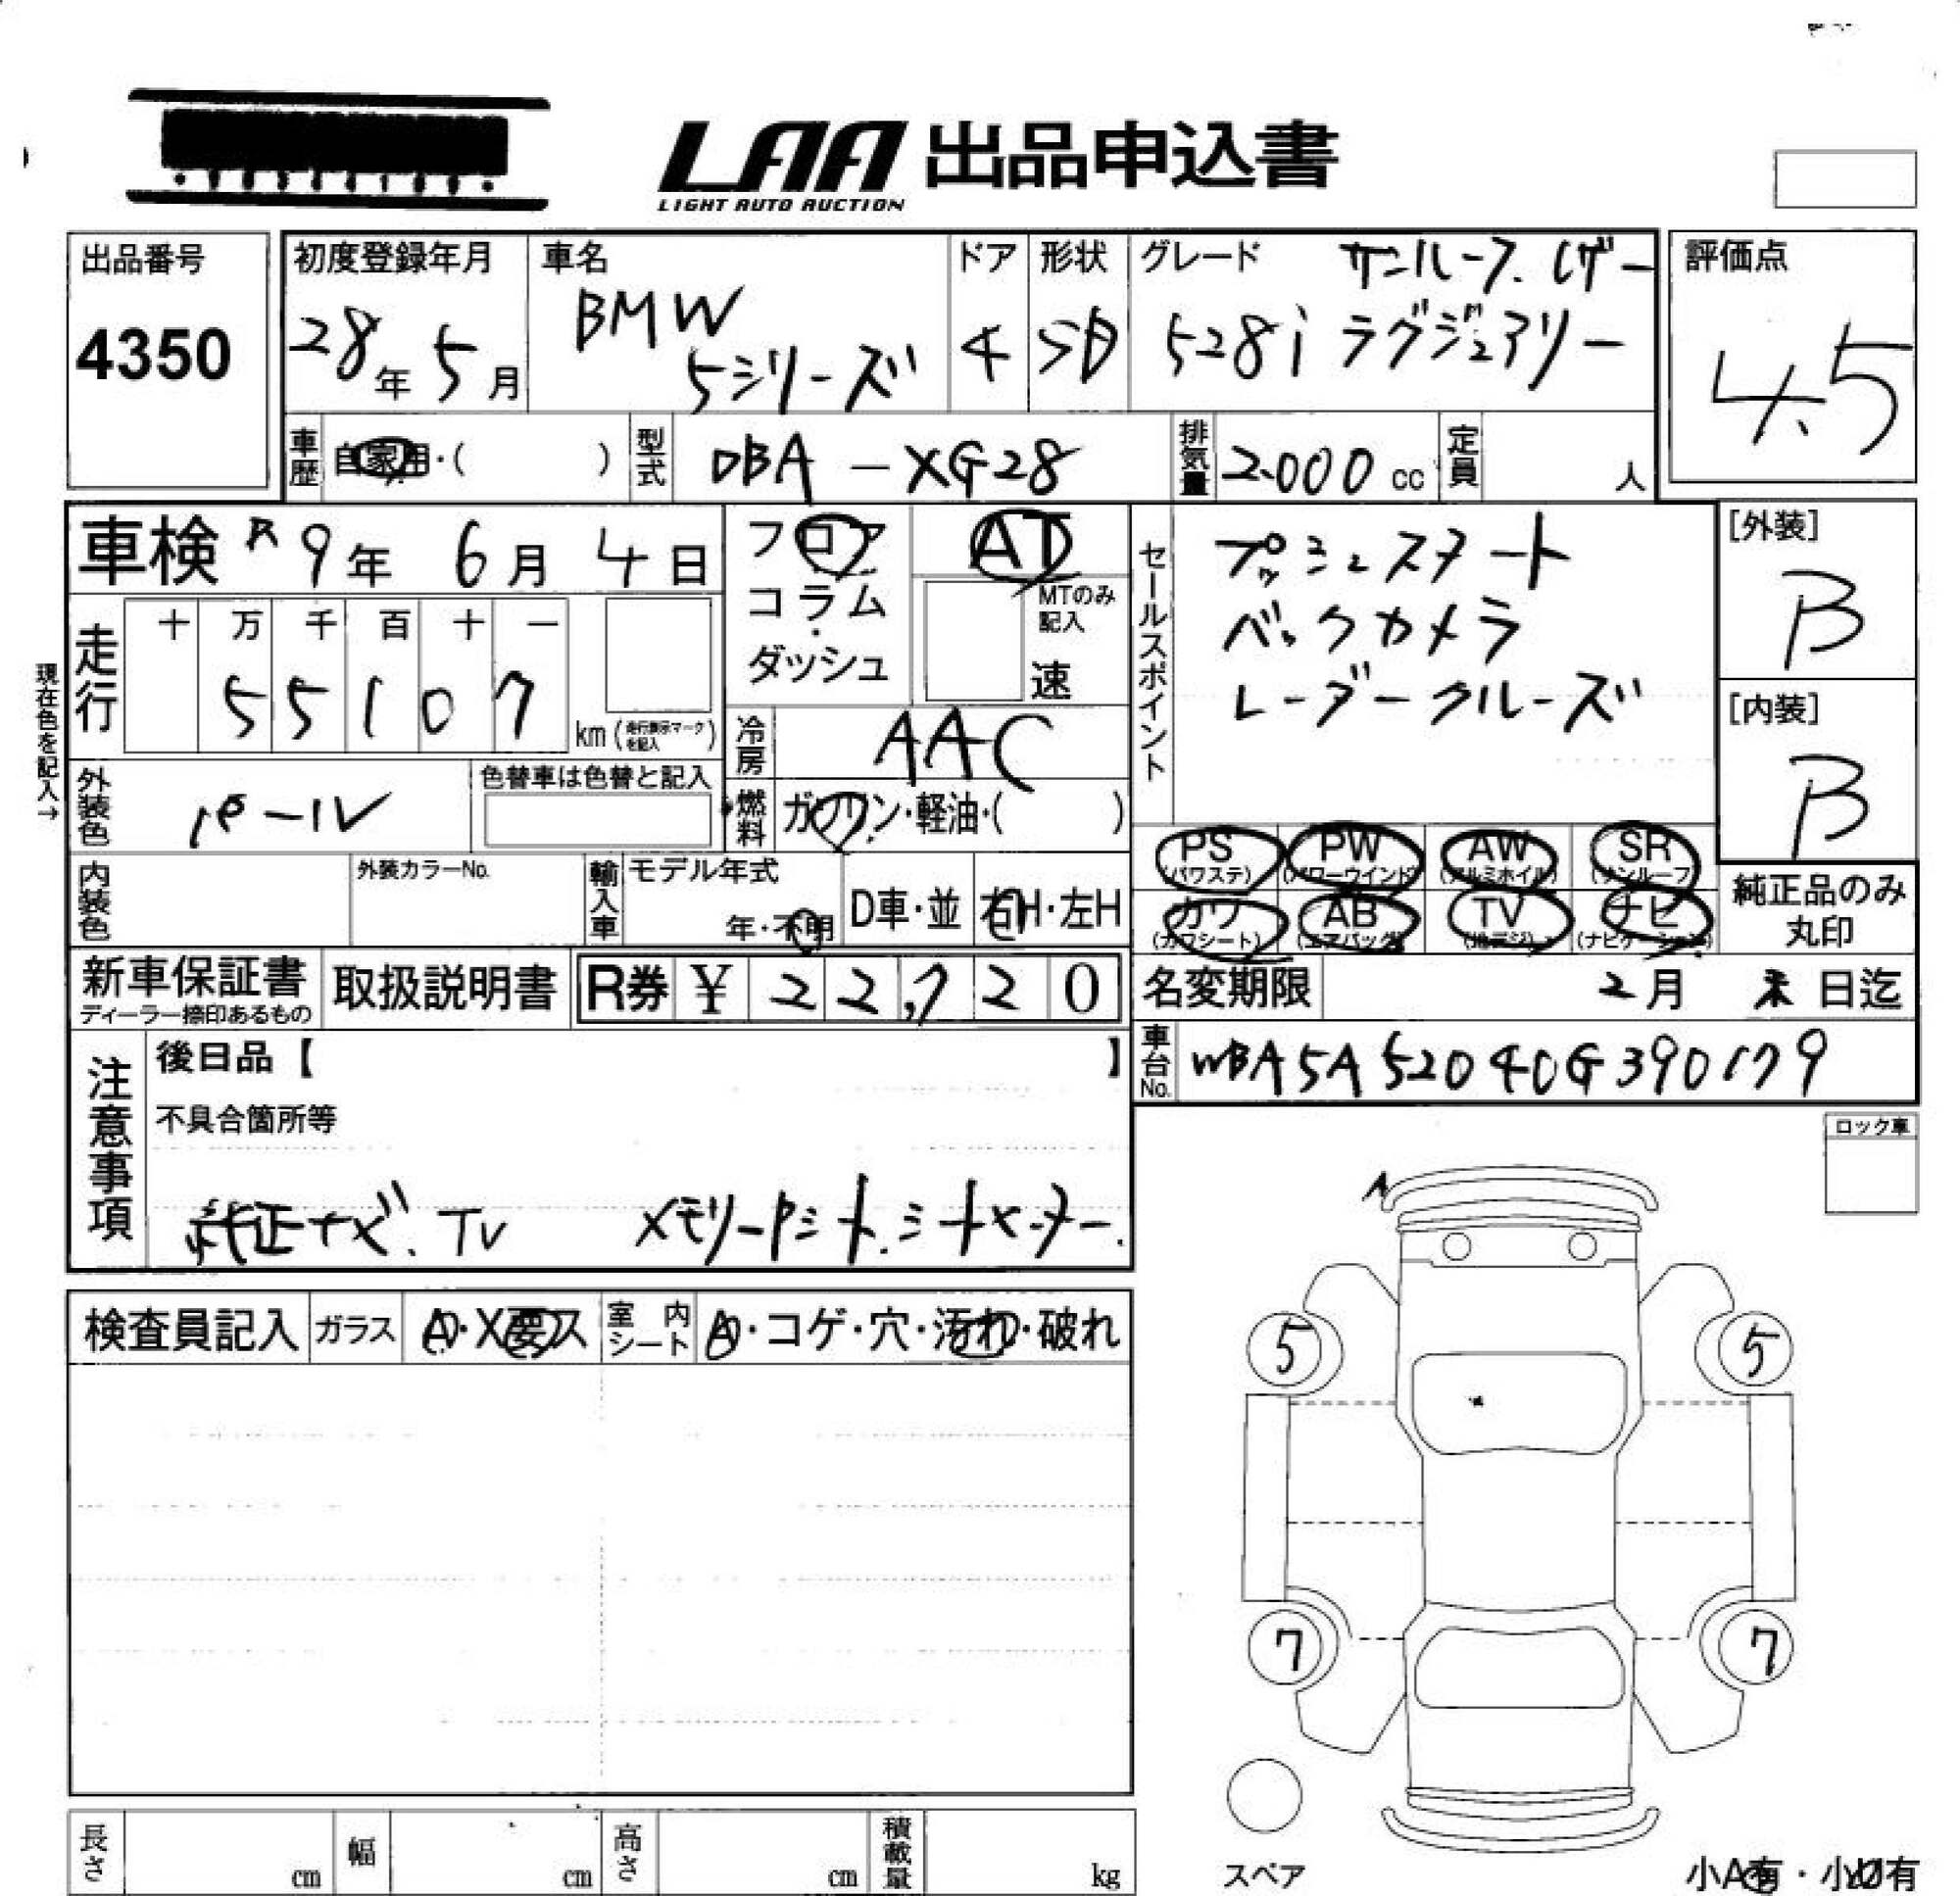 LAA 出品申込書
LIGHT AUTO AUCTION
出品番号
4350
初度登録年月
28年 5月
車名
BMW
5シリーズ
ドア
4
形状
SD
グレード
サンルーフ.レザー
528i ラグジュアリー
評価点
4.5
車歴 自家用・( )
型式 DBA-XG28
排気量 2000 cc
定員 人
車検 R9年 6月 4日
走行
十 万 千 百 十 一
5 5 1 0 7
km(走行表示マークを記入)
現在色を記入→
外装色 パール
色替車は色替と記入
内装色
外装カラーNo.
フロア
コラム
・
ダッシュ
AT
MTのみ
記入
速
冷房 AAC
燃料 ガソリン・軽油・( )
輸入車
モデル年式
年・不明
D車・並
右H・左H
セールスポイント
プッシュスタート
バックカメラ
レーダークルーズ
[外装]
B
[内装]
B
PS (パワステ) PW (パワーウインド) AW (アルミホイル) SR (サンルーフ)
カワ (カワシート) AB (エアバッグ) TV (地デジ) ナビ (ナビゲーション)
純正品のみ
丸印
新車保証書
ディーラー捺印あるもの
取扱説明書
R券 ¥ 22,720
名変期限 2月 末日迄
車台No. WBA5A52040G390179
注意事項
後日品【 】
不具合箇所等
純正ナビ.TV メモリーPシート.シートヒーター.
ロック車
検査員記入
ガラス A・X要ス
室内シート A・コゲ・穴・汚れ・破れ
A
5 5
7 7
スペア
小A有・小U有
長さ cm
幅 cm
高さ cm
積載量 kg